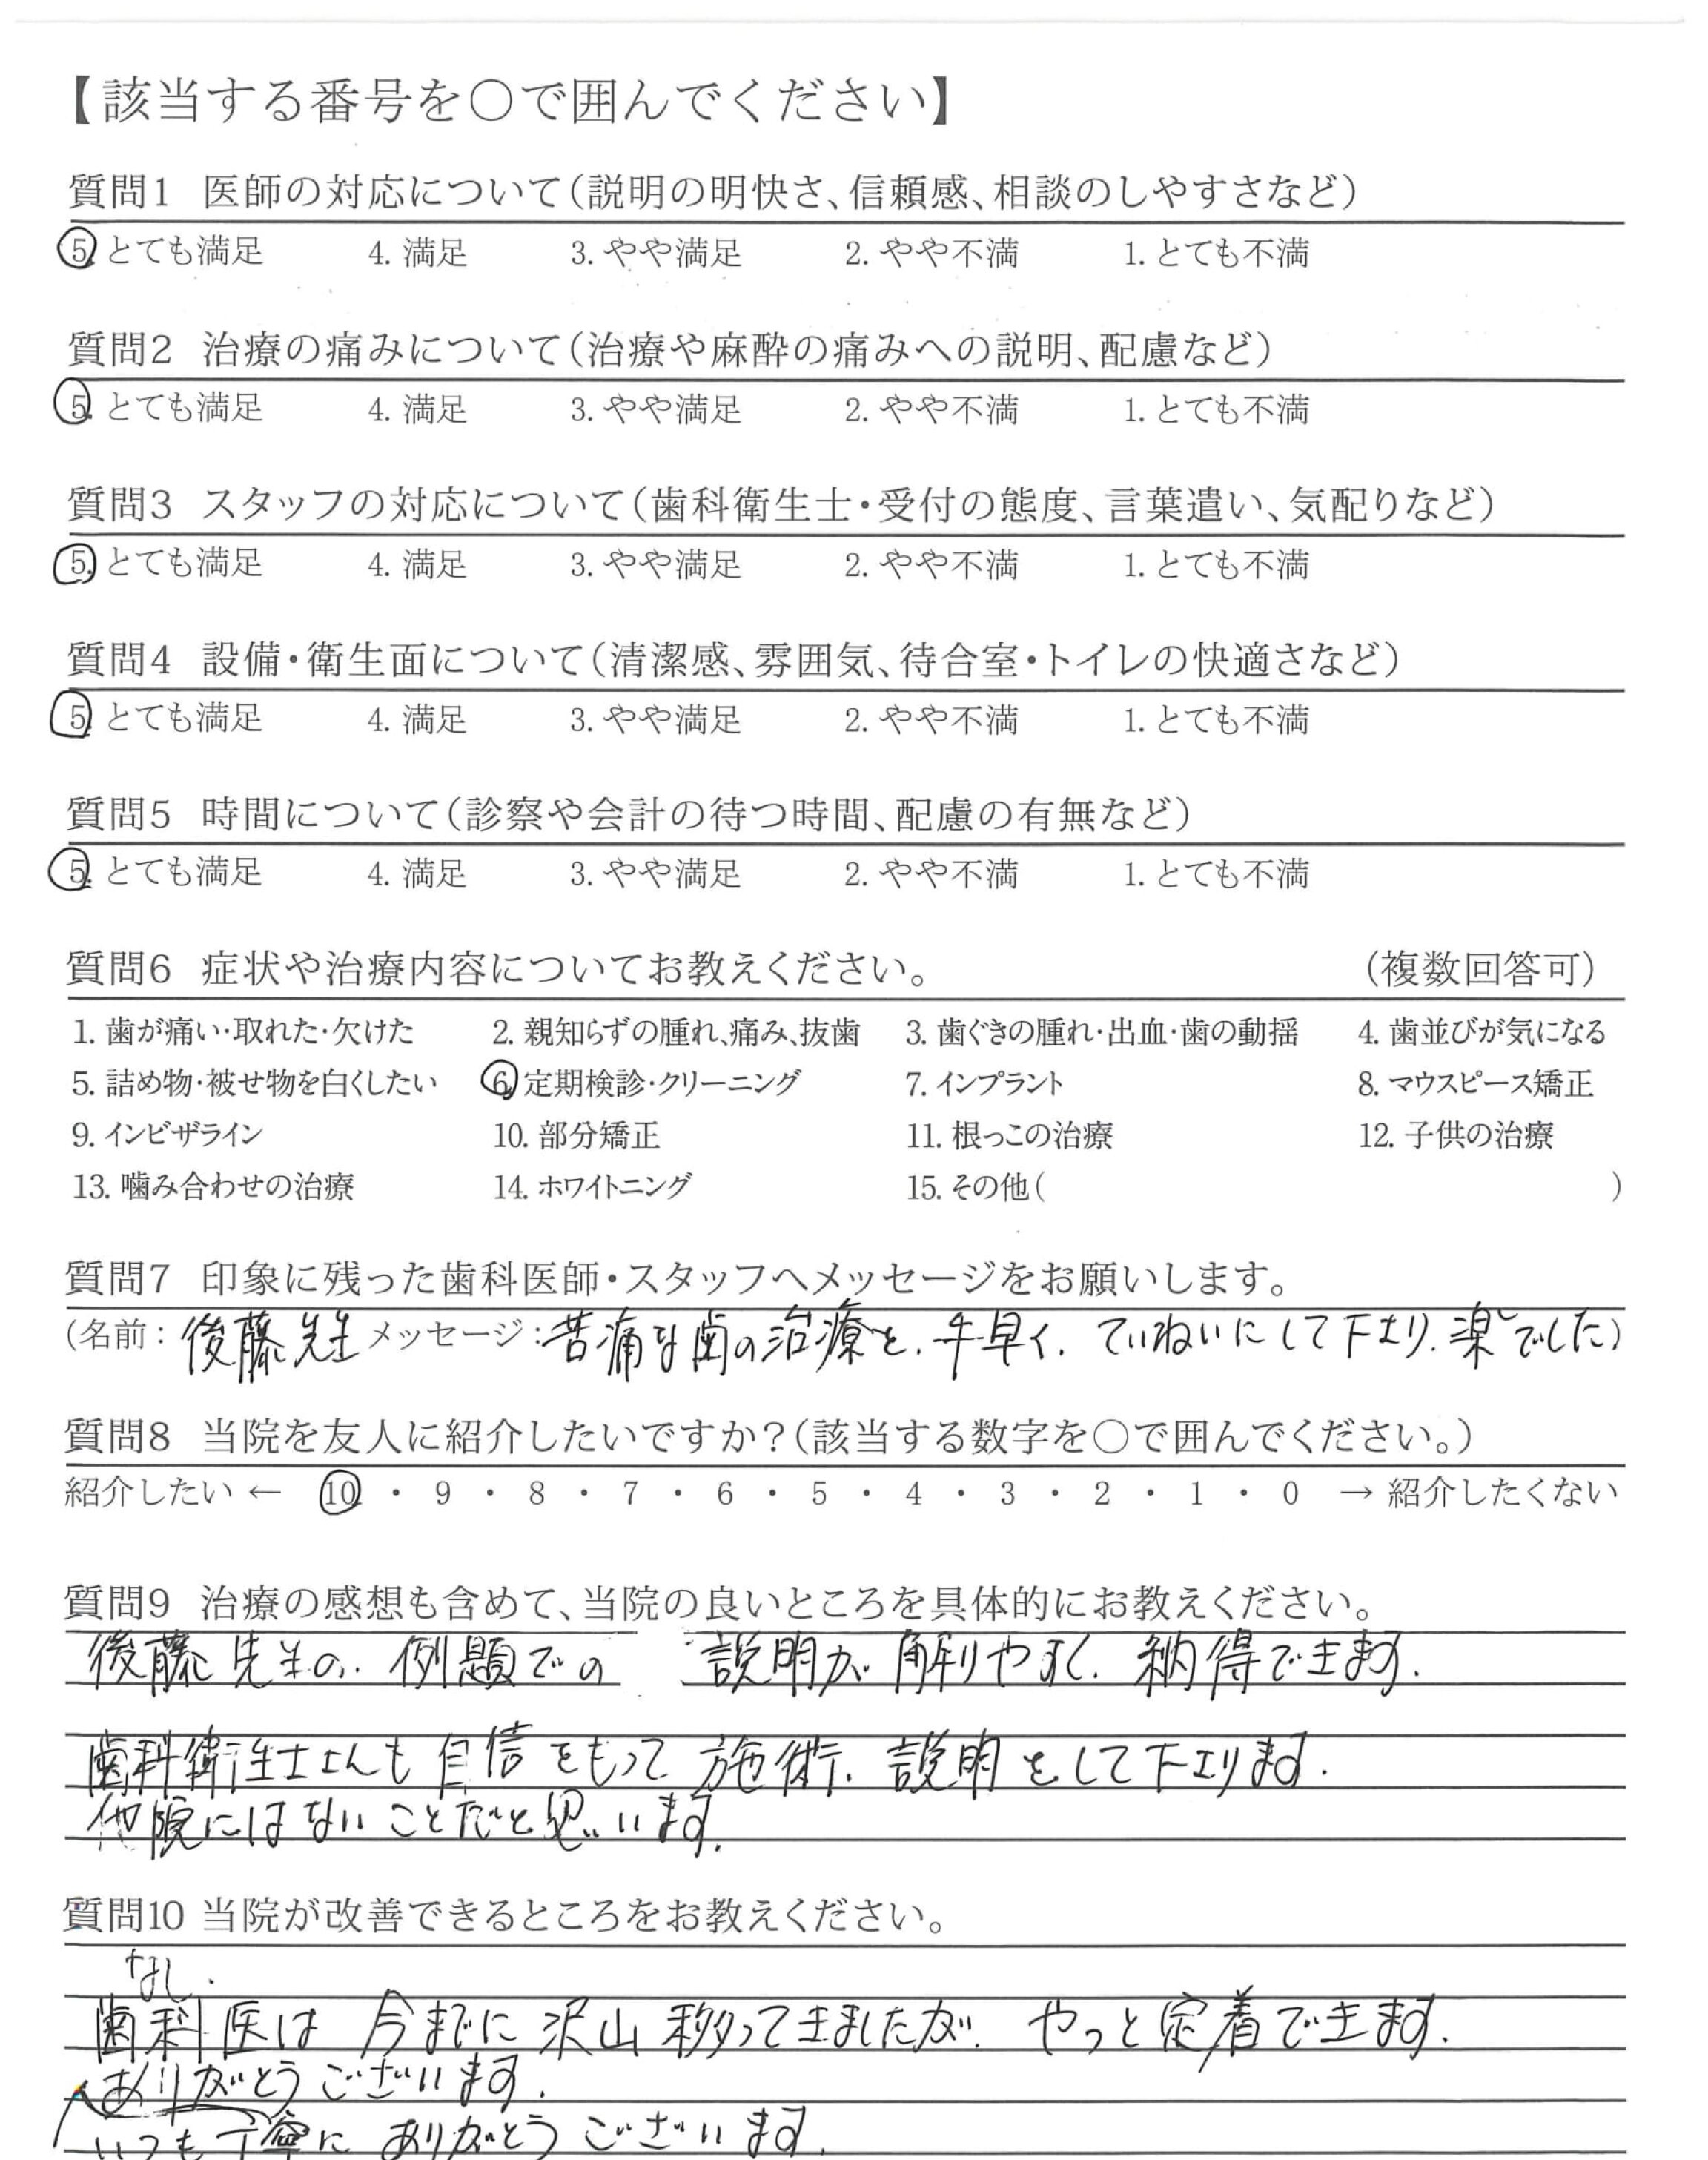 【該当する番号を〇で囲んでください】
質問1 医師の対応について(説明の明快さ、信頼感、相談のしやすさなど)
5. とても満足 4. 満足 3. やや満足 2. やや不満 1. とても不満
質問2 治療の痛みについて(治療や麻酔の痛みへの説明、配慮など)
5. とても満足 4. 満足 3. やや満足 2. やや不満 1. とても不満
質問3 スタッフの対応について(歯科衛生士・受付の態度、言葉遣い、気配りなど)
5. とても満足 4. 満足 3. やや満足 2. やや不満 1. とても不満
質問4 設備・衛生面について(清潔感、雰囲気、待合室・トイレの快適さなど)
5. とても満足 4. 満足 3. やや満足 2. やや不満 1. とても不満
質問5 時間について(診察や会計の待つ時間、配慮の有無など)
5. とても満足 4. 満足 3. やや満足 2. やや不満 1. とても不満
質問6 症状や治療内容についてお教えください。 (複数回答可)
1. 歯が痛い・取れた・欠けた 2. 親知らずの腫れ、痛み、抜歯 3. 歯ぐきの腫れ・出血・歯の動揺 4. 歯並びが気になる
5. 詰め物・被せ物を白くしたい 6. 定期検診・クリーニング 7. インプラント 8. マウスピース矯正
9. インビザライン 10. 部分矯正 11. 根っこの治療 12. 子供の治療
13. 噛み合わせの治療 14. ホワイトニング 15. その他( )
質問7 印象に残った歯科医師・スタッフへメッセージをお願いします。
(名前: 後藤先生 メッセージ: 苦痛な歯の治療を、手早く、ていねいにして下さり、楽でした)
質問8 当院を友人に紹介したいですか?(該当する数字を〇で囲んでください。)
紹介したい ← 10 ・ 9 ・ 8 ・ 7 ・ 6 ・ 5 ・ 4 ・ 3 ・ 2 ・ 1 ・ 0 → 紹介したくない
質問9 治療の感想も含めて、当院の良いところを具体的にお教えください。
後藤先生の、例題での 説明が解りやすく、納得できます。
歯科衛生士さんも自信をもって施術、説明をして下さります。
他院にはないことだと思います。
質問10 当院が改善できるところをお教えください。
なし。
歯科医は今までに沢山移ってきましたが、やっと定着できます。
ありがとうございます。
いつも丁寧にありがとうございます。